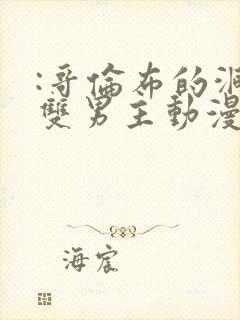 :哥倫布的洞
雙男主動漫
海宸